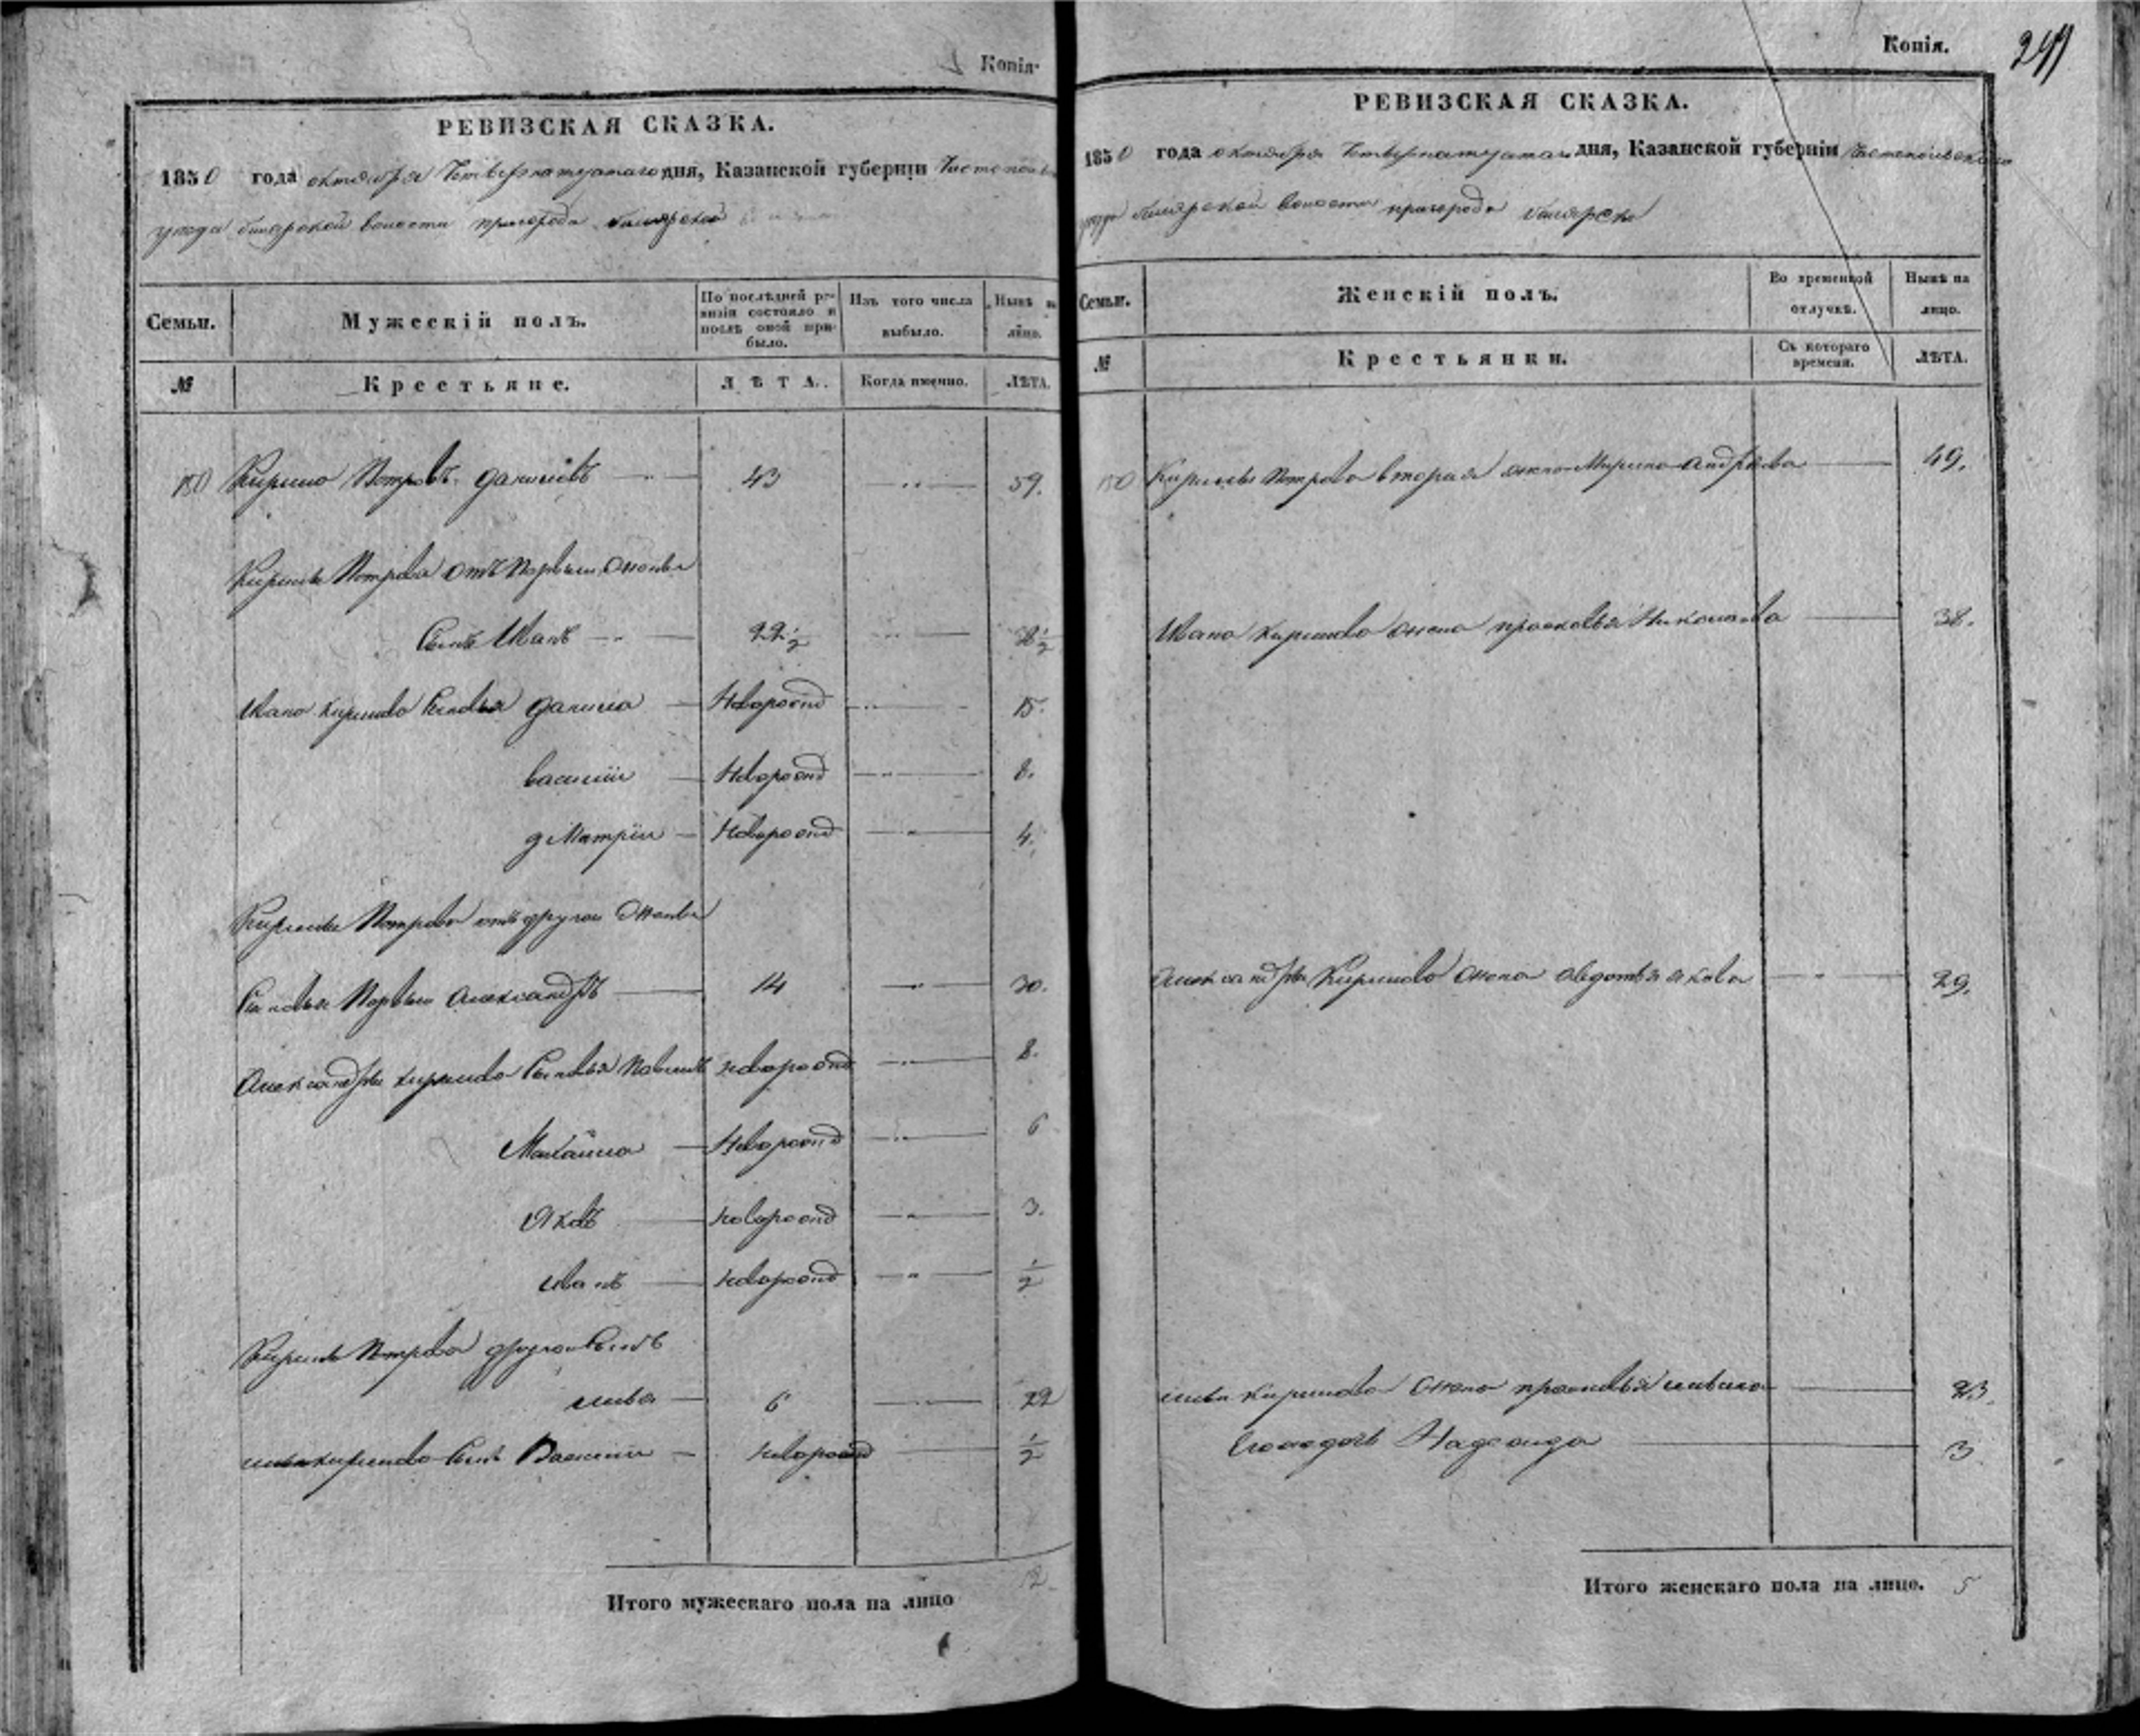 Копія.
РЕВИЗСКАЯ СКАЗКА.
1850 года октября Четвертатцатаго дня, Казанской губерніи Чистопольс
уезда билярской волости пригорода билярска
Семьи.
Мужескій полъ.
По послѣдней ревизіи состояло и послѣ оной прибыло.
Изъ того числа выбыло.
Нынѣ на лицо.
№
Крестьяне.
ЛѢТА.
Когда именно.
ЛѢТА.
150 Кирило Петровъ даниловъ 43 59.
Кирила Петрова отъ Первой жены
Сынъ Иванъ 22½ 38½
Ивана кирилова Сыновья данила Новорожд 15.
василий Новорожд 8.
дмитрий Новорожд 4.
Кирила Петрова отъ другой жены
Сыновья Первый Александръ 14 30.
Александра кирилова Сыновья Павелъ новорожд 8.
Михайла Новорожд 6
Яковъ новорожд 3.
иванъ новорожд ½
Кирила Петрова другой Сынъ
илья 6 22
ильи кирилова Сынъ Василий новорожд ½
Итого мужескаго пола на лицо 12.
Копія.
РЕВИЗСКАЯ СКАЗКА.
1850 года октября Четвертатцатаго дня, Казанской губерніи Чистопольскаго
уезда билярской волости пригорода билярска
Семьи.
Женскій полъ.
Во временной отлучкѣ.
Нынѣ на лицо.
№
Крестьянки.
Съ котораго времени.
ЛѢТА.
150 Кирилы Петрова вторая жена Марина Андреева 49.
Ивана кирилова жена прасковья Николаева 38.
Александра Кирилова жена авдотья якова 29.
ильи кирилова жена прасковья 23.
Его дочь Надежда 3
Итого женскаго пола на лицо. 5